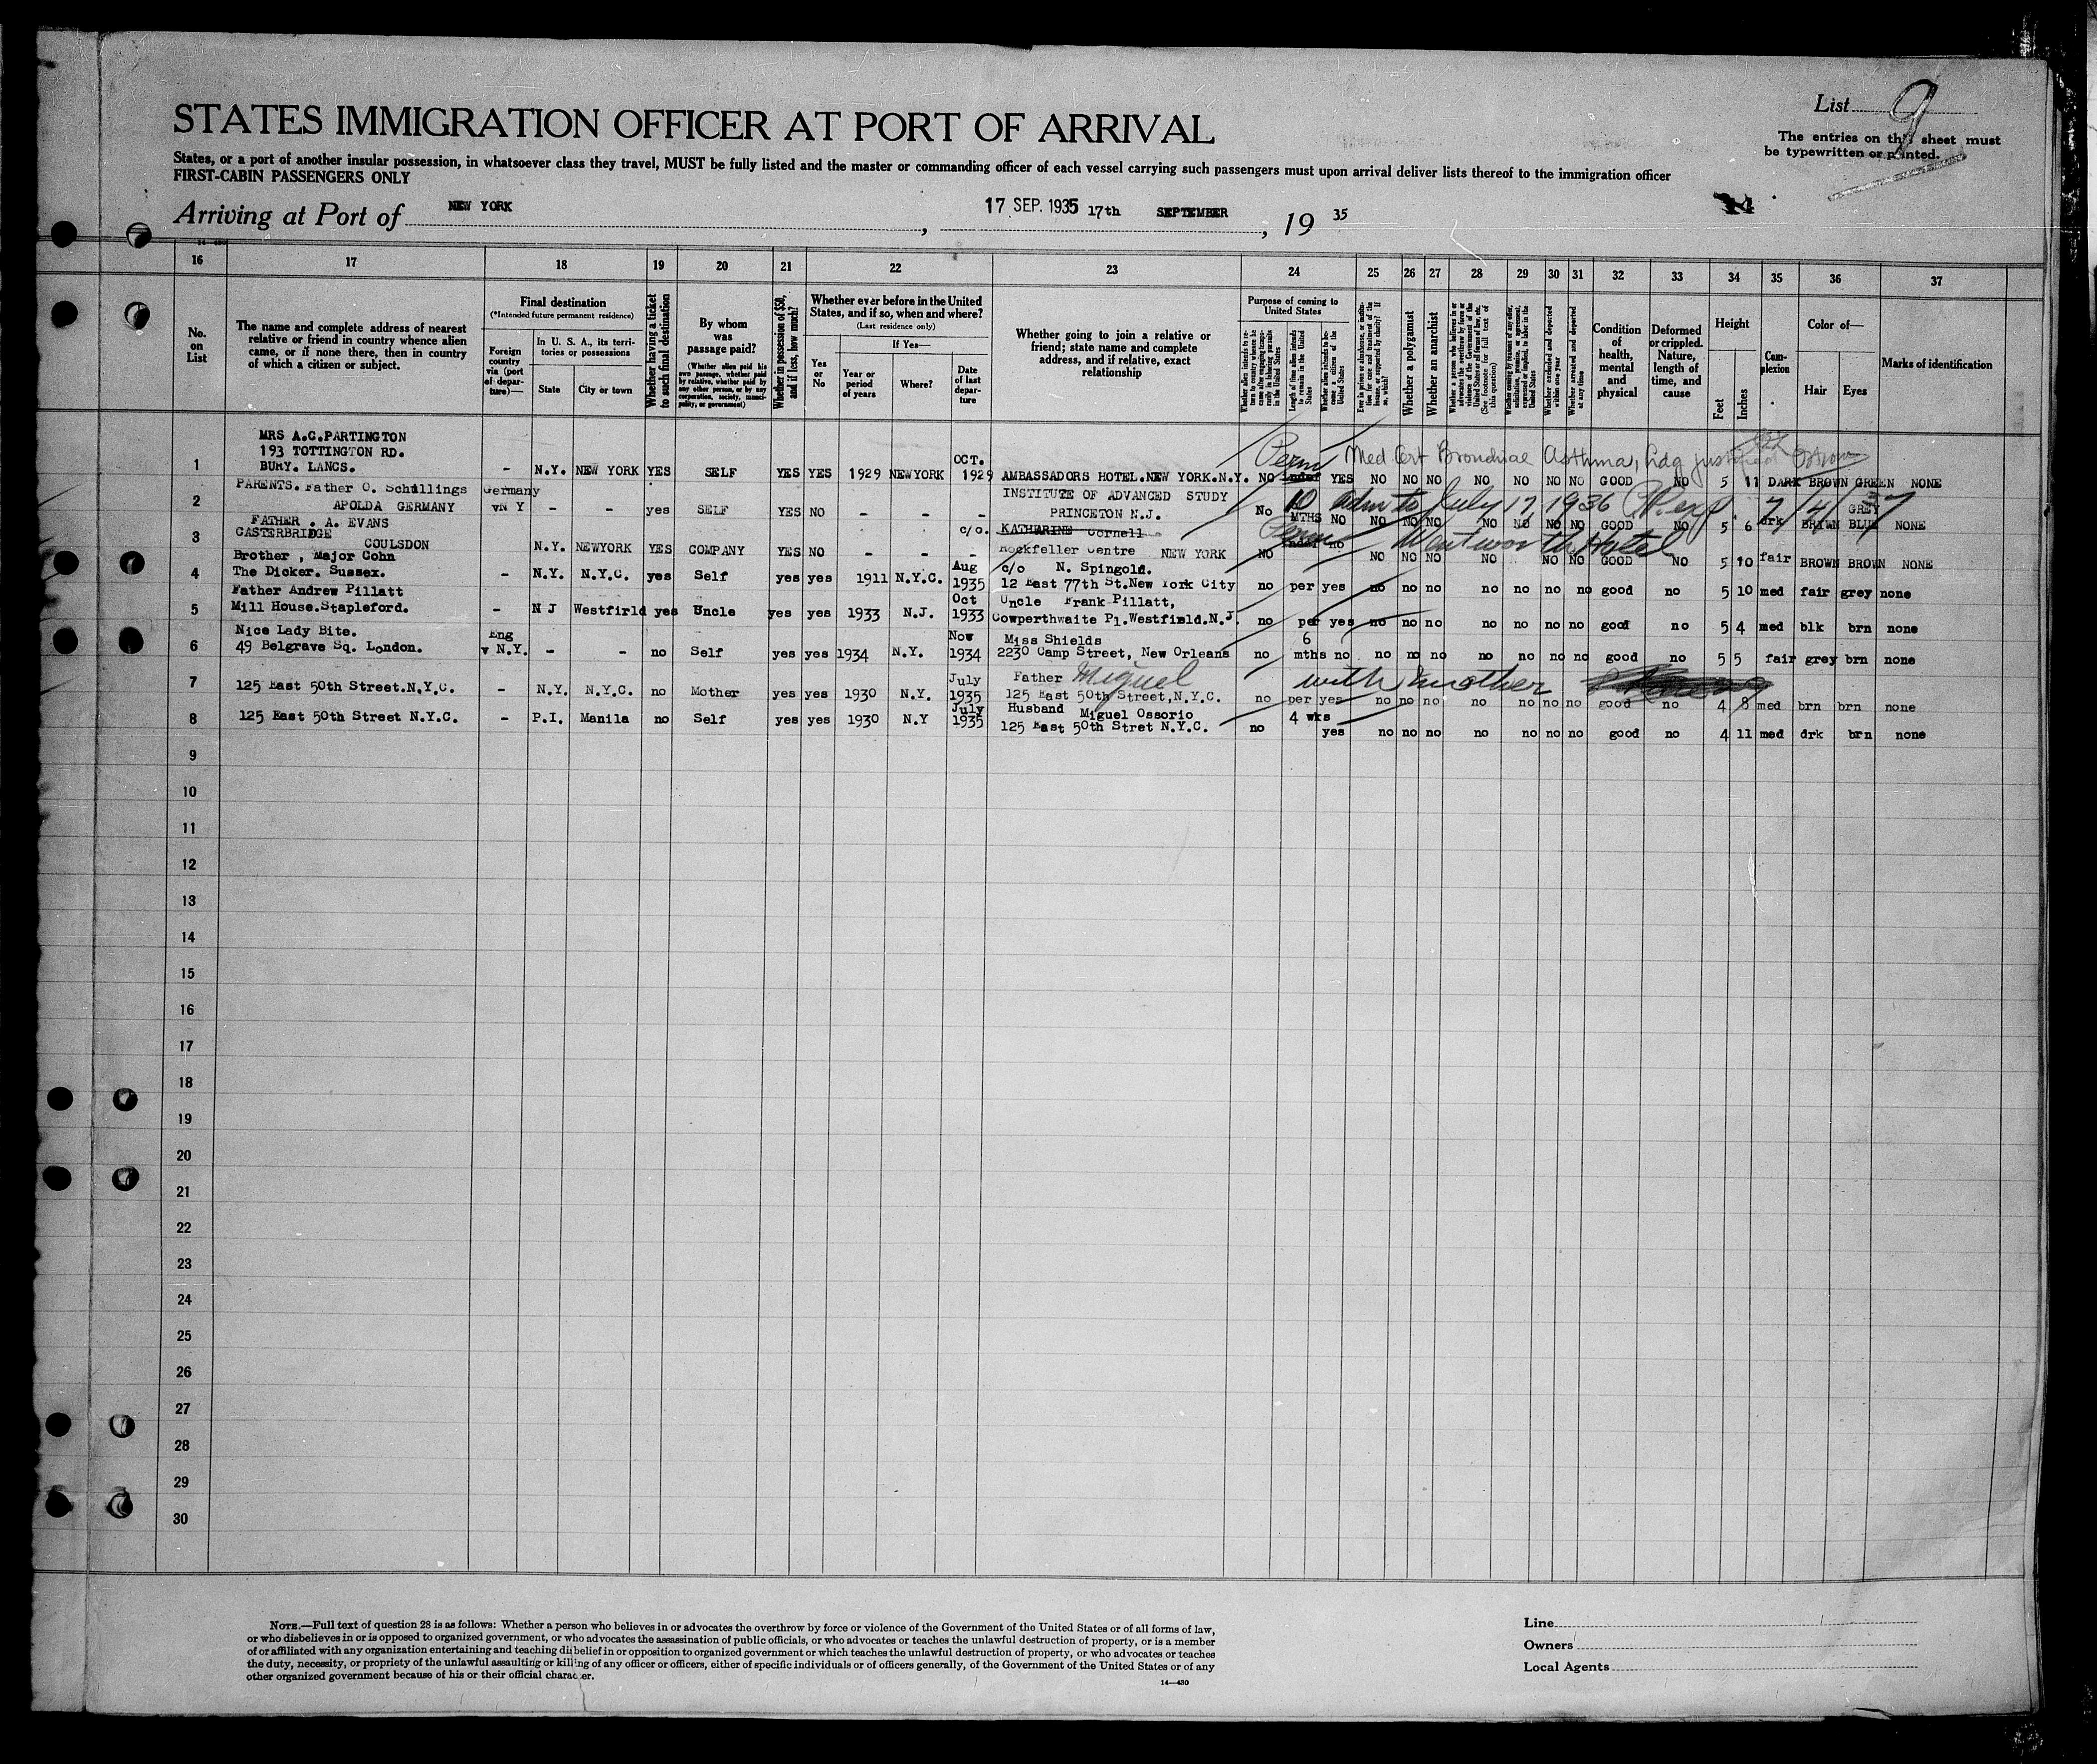 List 9
STATES IMMIGRATION OFFICER AT PORT OF ARRIVAL
The entries on this sheet must
be typewritten or printed.
States, or a port of another insular possession, in whatsoever class they travel, MUST be fully listed and the master or commanding officer of each vessel carrying such passengers must upon arrival deliver lists thereof to the immigration officer
FIRST-CABIN PASSENGERS ONLY
Arriving at Port of NEW YORK, 17 SEP. 1935 17th SEPTEMBER, 19 35
16 17 18 19 20 21 22 23 24 25 26 27 28 29 30 31 32 33 34 35 36 37
No. on List
The name and complete address of nearest
relative or friend in country whence alien
came, or if none there, then in country
of which a citizen or subject.
Final destination
(*Intended future permanent residence)
Foreign country via (port of departure)—
In U. S. A., its territories or possessions
State
City or town
Whether having a ticket to such final destination
By whom was passage paid?
(Whether alien paid his own passage, whether paid by relative, whether paid by any other person, or by any corporation, society, municipality, or government)
Whether in possession of $50, and if less, how much?
Whether ever before in the United States, and if so, when and where?
(Last residence only)
Yes or No
If Yes—
Year or period of years
Where?
Date of last departure
Whether going to join a relative or
friend; state name and complete
address, and if relative, exact
relationship
Purpose of coming to United States
Length of time alien intends to remain in the United States
Whether alien intends to become a citizen of the United States
Whether a polygamist
Whether an anarchist
Whether excluded and deported within one year
Whether arrested and deported at any time
Condition of health, mental and physical
Deformed or crippled. Nature, length of time, and cause
Height
Feet
Inches
Complexion
Color of—
Hair
Eyes
Marks of identification
MRS A.C.PARTINGTON
193 TOTTINGTON RD.
Perm Med Cert Bronchial Asthma, hdg
1 BURY. LANCS. - N.Y. NEW YORK YES SELF YES YES 1929 NEWYORK OCT. 1929 AMBASSADORS HOTEL.NEW YORK.N.Y. NO YES NO NO NO NO NO NO NO GOOD NO 5 11 DARK BROWN GREEN NONE
PARENTS. Father O. Schillings Germany INSTITUTE OF ADVANCED STUDY
10 adm to July 17, 1936 P.P. exp 7/4/37
2 APOLDA GERMANY vN Y - - yes SELF YES NO - - - PRINCETON N.J. No MTHS NO NO NO NO NO NO NO NO GOOD NO 5 6 drk BROWN GREY BLUE NONE
FATHER . A. EVANS
CASTERBRIDGE c/o. KATHARINE Cornell
Perm Wentworth Hotel
3 COULSDON N.Y. NEWYORK YES COMPANY YES NO - - - Rockfeller Centre NEW YORK NO no NO NO NO NO NO NO GOOD NO 5 10 fair BROWN BROWN NONE
Brother , Major Cohn Aug c/o N. Spingold.
4 The Dicker. Sussex. - N.Y. N.Y.C. yes Self yes yes 1911 N.Y.C. 1935 12 East 77th St.New York City no per yes no no no no no no no good no 5 10 med fair grey none
Father Andrew Pillatt Oct Uncle Frank Pillatt,
5 Mill House.Stapleford. - N J Westfirld yes Uncle yes yes 1933 N.J. 1933 Cowperthwaite Pl.Westfield.N.J. no per yes no no no no no no no good no 5 4 med blk brn none
Nice Lady Bite. Eng Nov Miss Shields 6
6 49 Belgrave Sq. London. v N.Y. - - no Self yes yes 1934 N.Y. 1934 2230 Camp Street, New Orleans no mths no no no no no no no no good no 5 5 fair grey brn none
July Father Miguel with mother
7 125 East 50th Street.N.Y.C. - N.Y. N.Y.C. no Mother yes yes 1930 N.Y. 1935 125 East 50th Street,N.Y.C. no per yes no no no no no no no good no 4 8 med brn brn none
July Husband Miguel Ossorio 4 wks
8 125 East 50th Street N.Y.C. - P.I. Manila no Self yes yes 1930 N.Y 1935 125 East 50th Stret N.Y.C. no yes no no no no no no no good no 4 11 med drk brn none
9
10
11
12
13
14
15
16
17
18
19
20
21
22
23
24
25
26
27
28
29
30
NOTE.—Full text of question 28 is as follows: Whether a person who believes in or advocates the overthrow by force or violence of the Government of the United States or of all forms of law,
or who disbelieves in or is opposed to organized government, or who advocates the assassination of public officials, or who advocates or teaches the unlawful destruction of property, or is a member
of or affiliated with any organization entertaining and teaching disbelief in or opposition to organized government or which teaches the unlawful destruction of property, or who advocates or teaches
the duty, necessity, or propriety of the unlawful assaulting or killing of any officer or officers, either of specific individuals or of officers generally, of the Government of the United States or of any
other organized government because of his or their official character.
14—430
Line
Owners
Local Agents